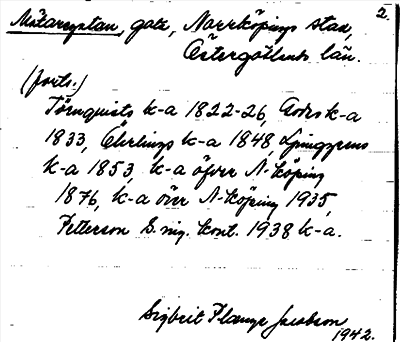 2.
Mätaregatan, gata, Norrköpings stad,
Östergötlands län.
(forts.)
Törnquists k-a 1822-26, k-a
1833, Ehrlings k-a 1848, Ljunggrens
k-a 1853, k-a öfver N-köping
1876, k-a över N-köping 1935,
Petterson S. kont. 1938 k-a.
Sigbrit Plænge Jacobson
1942.